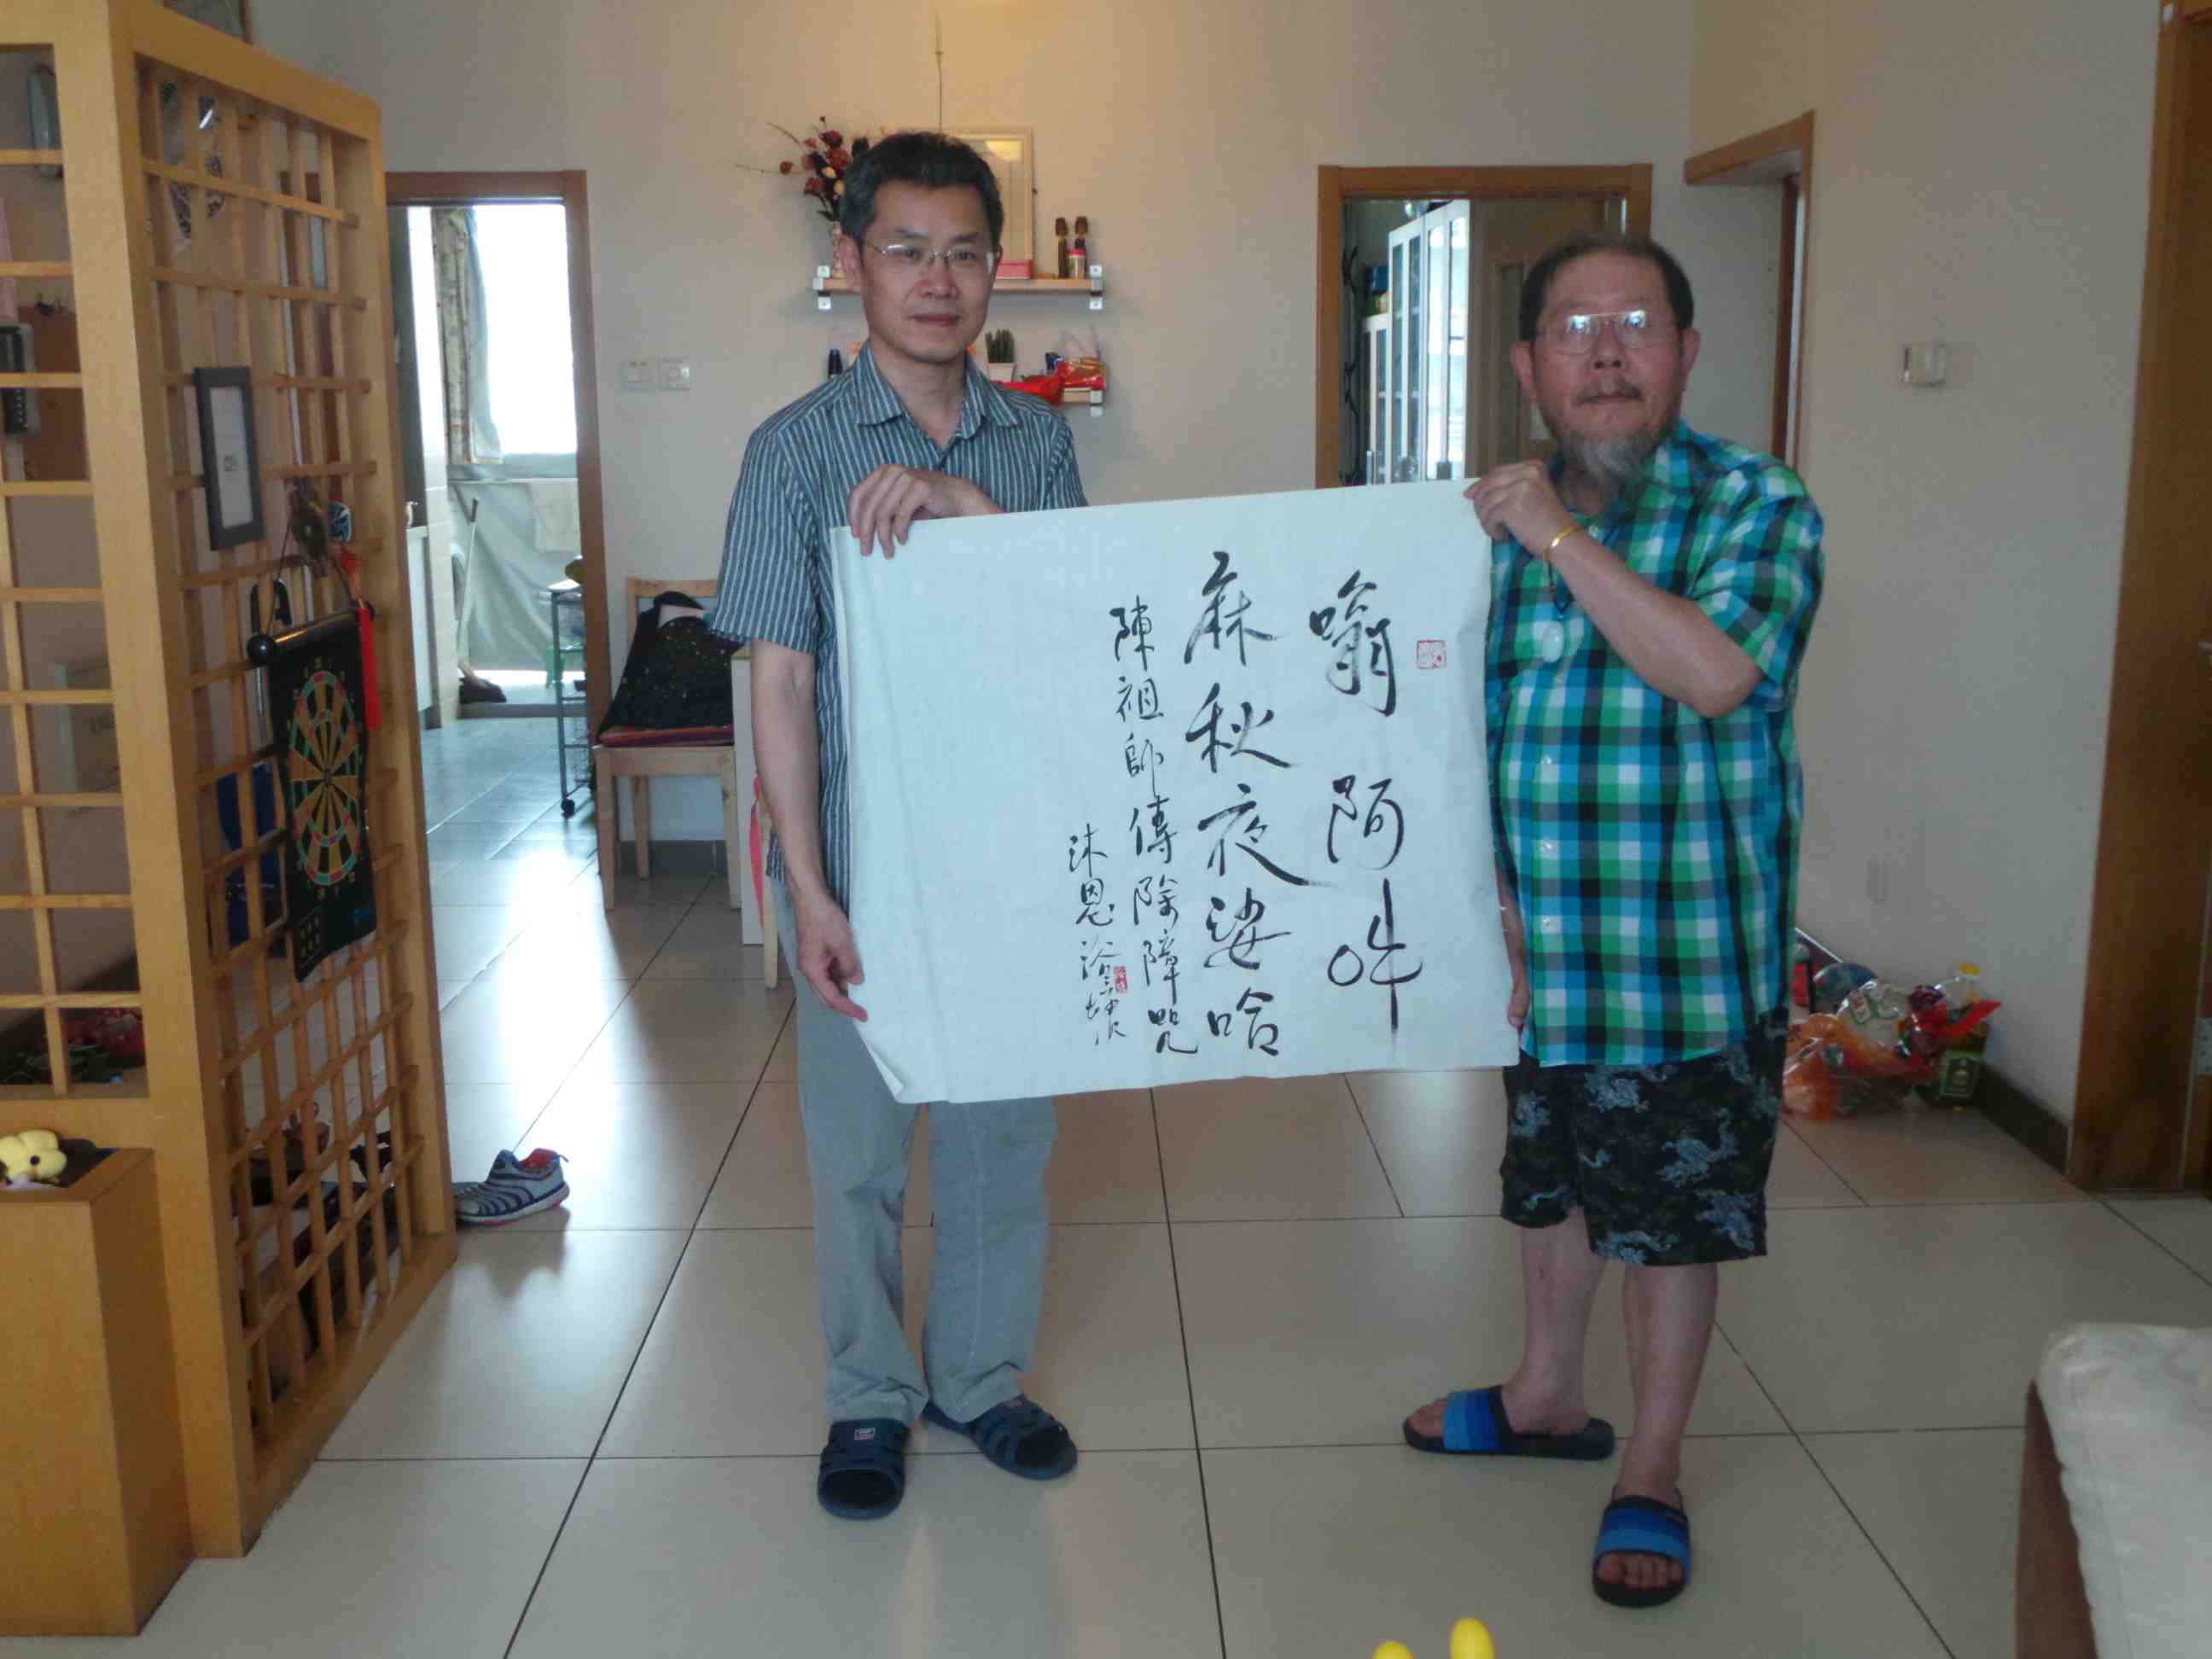 嗡阿吽
麻秋夜娑哈
陳祖師傳除障咒
沐恩浴